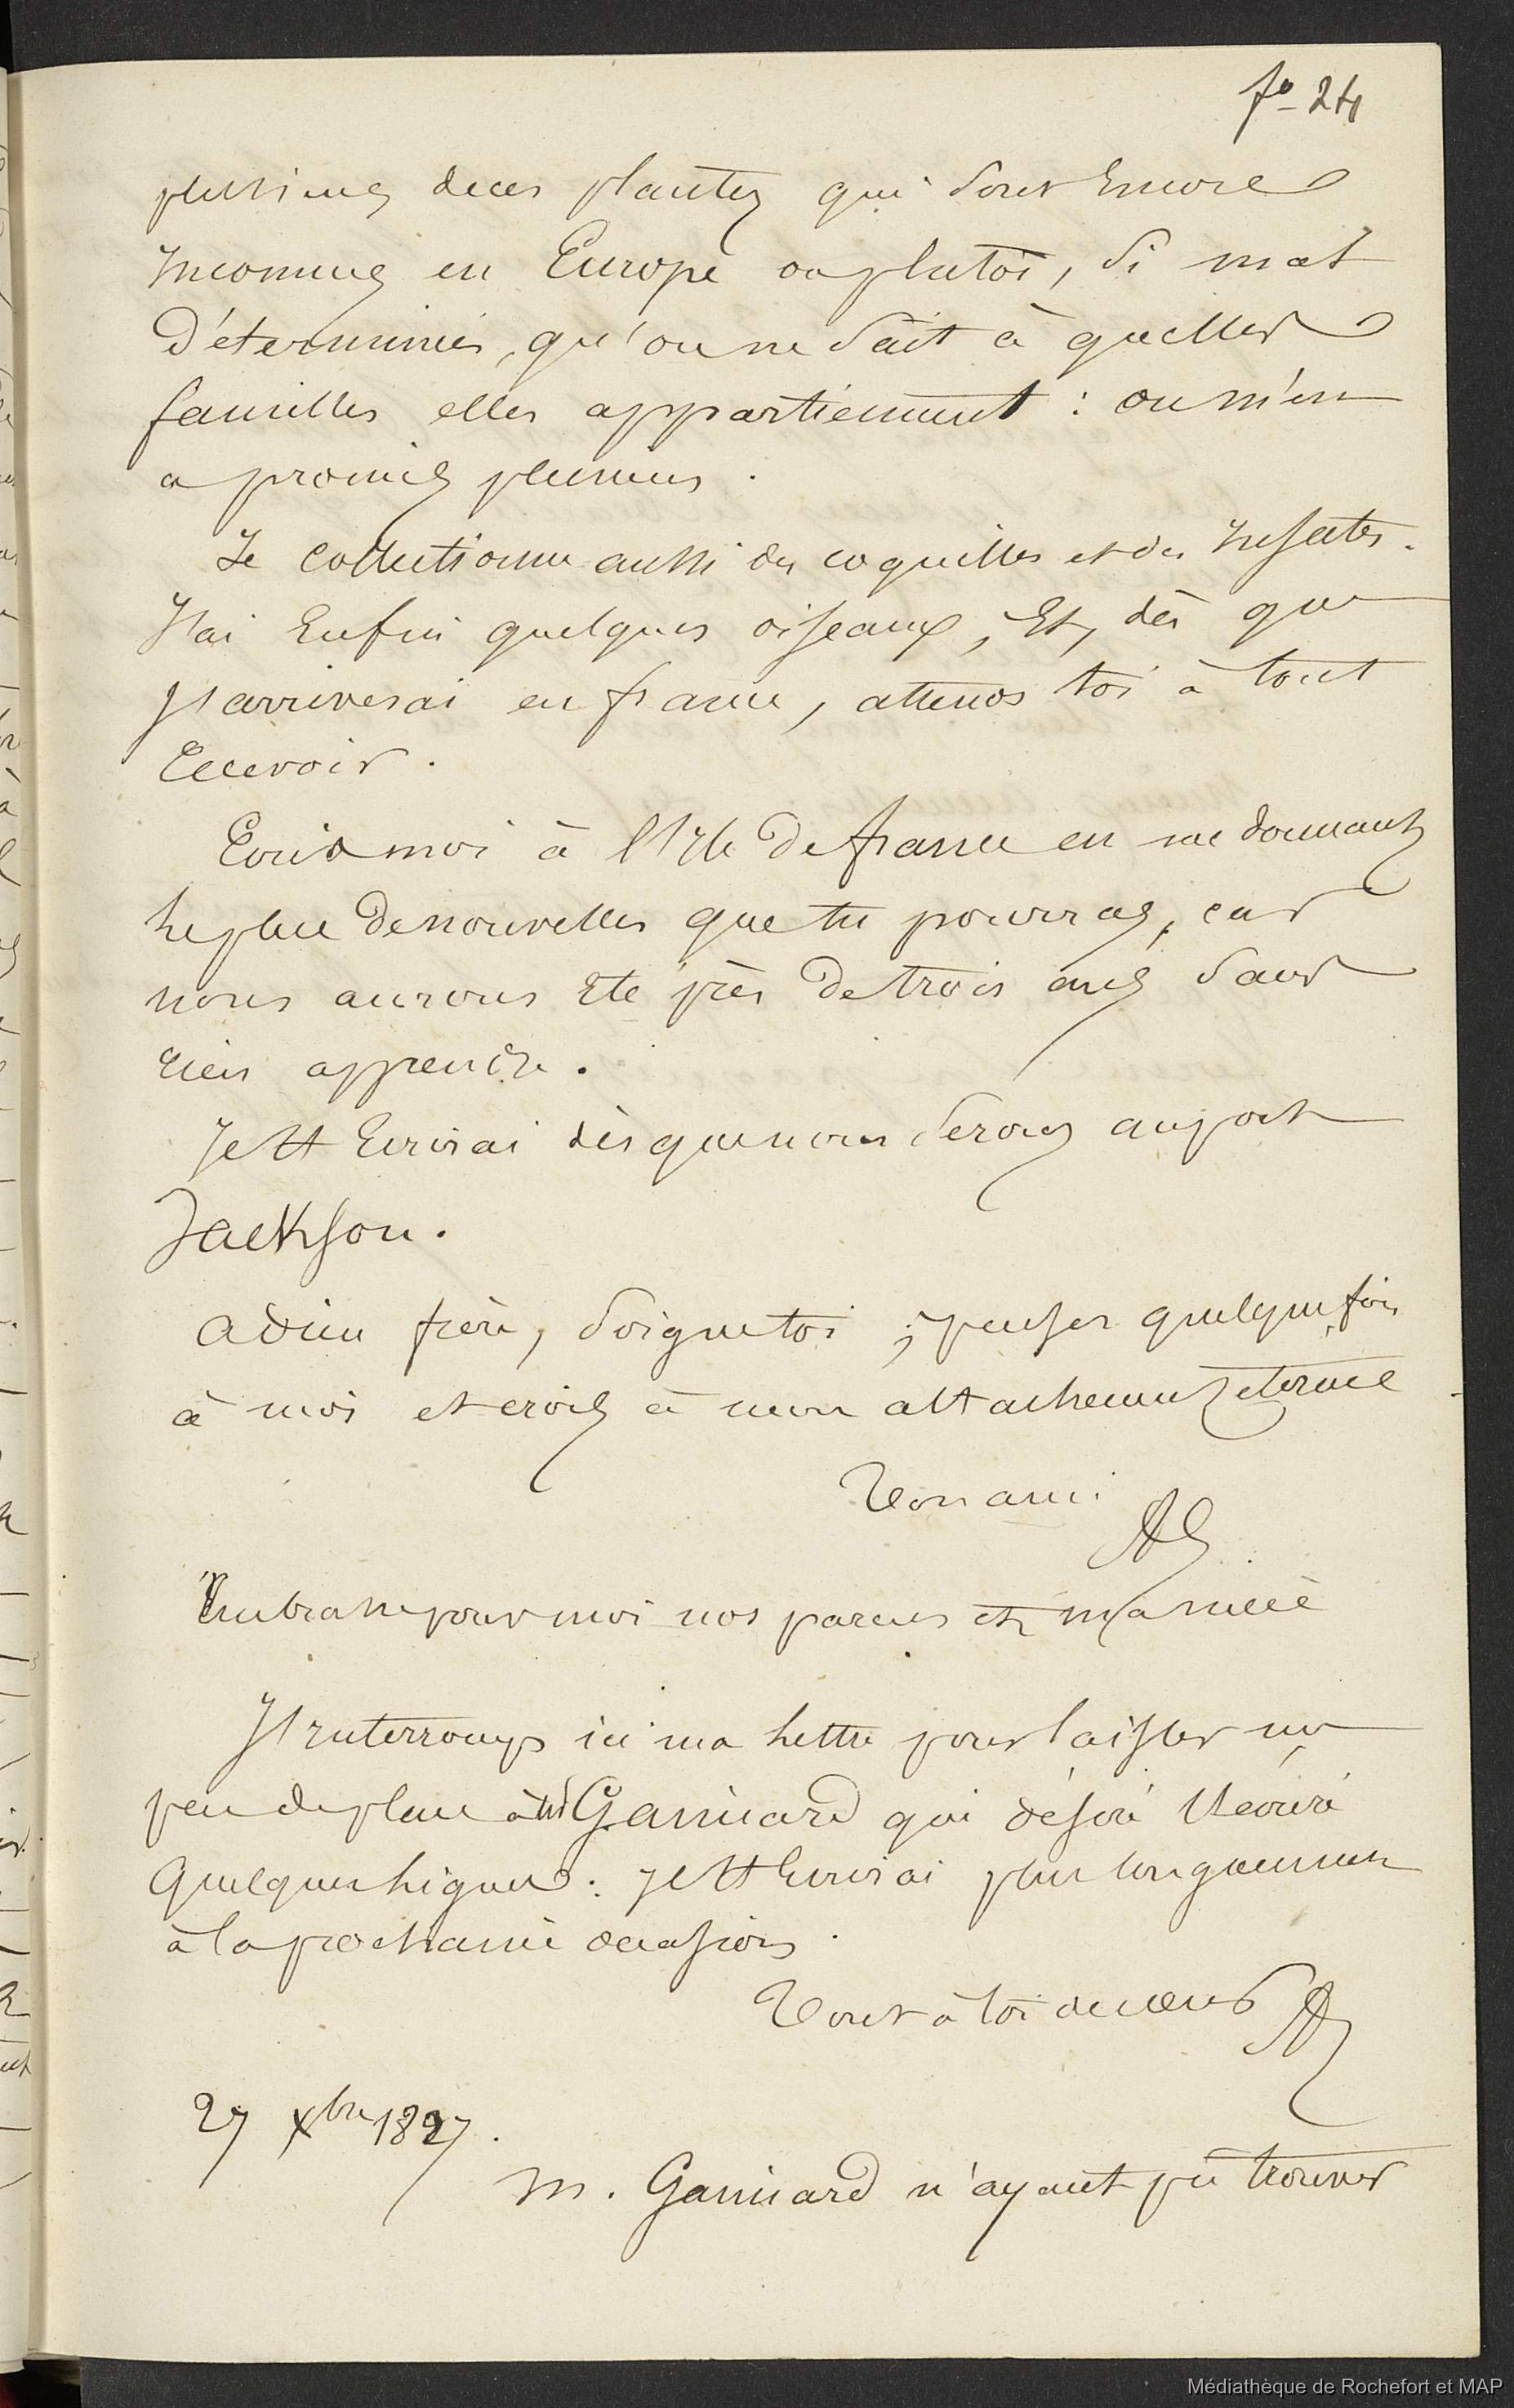 fo 24
plusieurs de ces plantes qui sont Encore
Inconnues en Europe ou plutôt, si mal
Déterminées, qu'on ne sait à quelles
familles elles appartiennent : on m'en
a promis plusieurs.
Je collectionne aussi des coquilles et des Insectes.
J'ai Enfin quelques oiseaux, Et, dès que
J'arriverai en france, attends toi à tout
recevoir.
Ecris moi à l'Isle De france en me donnant
le plus De nouvelles que tu pourras, car
nous aurons Eté près De trois ans sans
rien apprendre.
Je t'Ecrirai dès que nous serons au port
Jackson.
adieu frère, soigne toi ; penses quelquefois
à moi et crois à mon attachement eternel
Ton ami
AL
Embrasse pour moi nos parens et ma nièce
J'Interromps ici ma Lettre pour laisser un
peu de place à Mr Gaimard qui désire t'écrire
quelques Lignes : je t'Ecrirai plus longuement
à la prochaine occasion.
Tout à toi de cœur AL
27 Xbre 1827.
M. Gaimard n'ayant pu trouver
Médiathèque de Rochefort et MAP